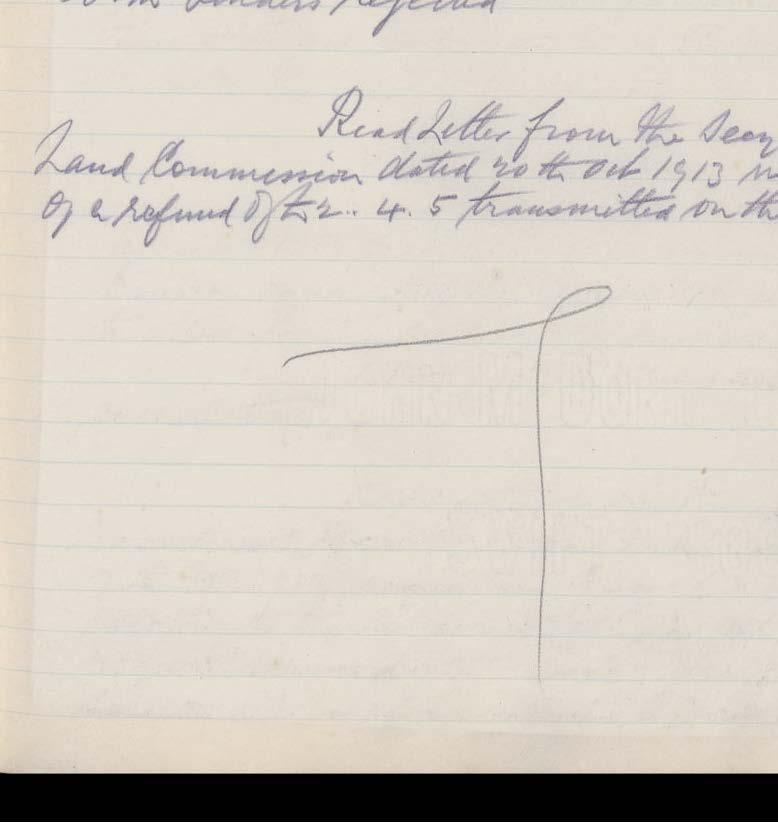 Tenders rejected
Read Letter from the Secy
Land Commission dated 20th Oct 1913
of a refund of £2.. 4. 5 transmitted on the